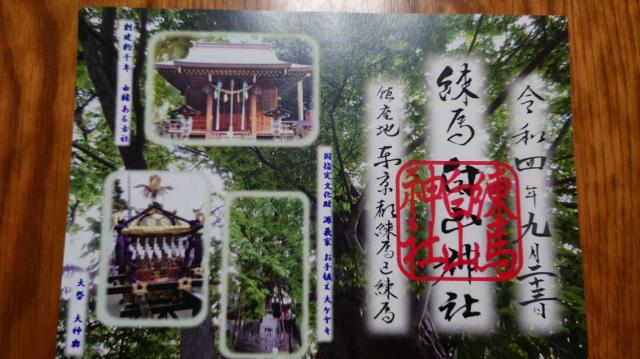 令和四年九月二十三日
練馬白山神社
鎮座地 東京都練馬区練馬
練馬
白山
神社
創建約千年 由緒ある古社
国指定文化財 源義家 お手植え大ケヤキ
大祭 大神輿